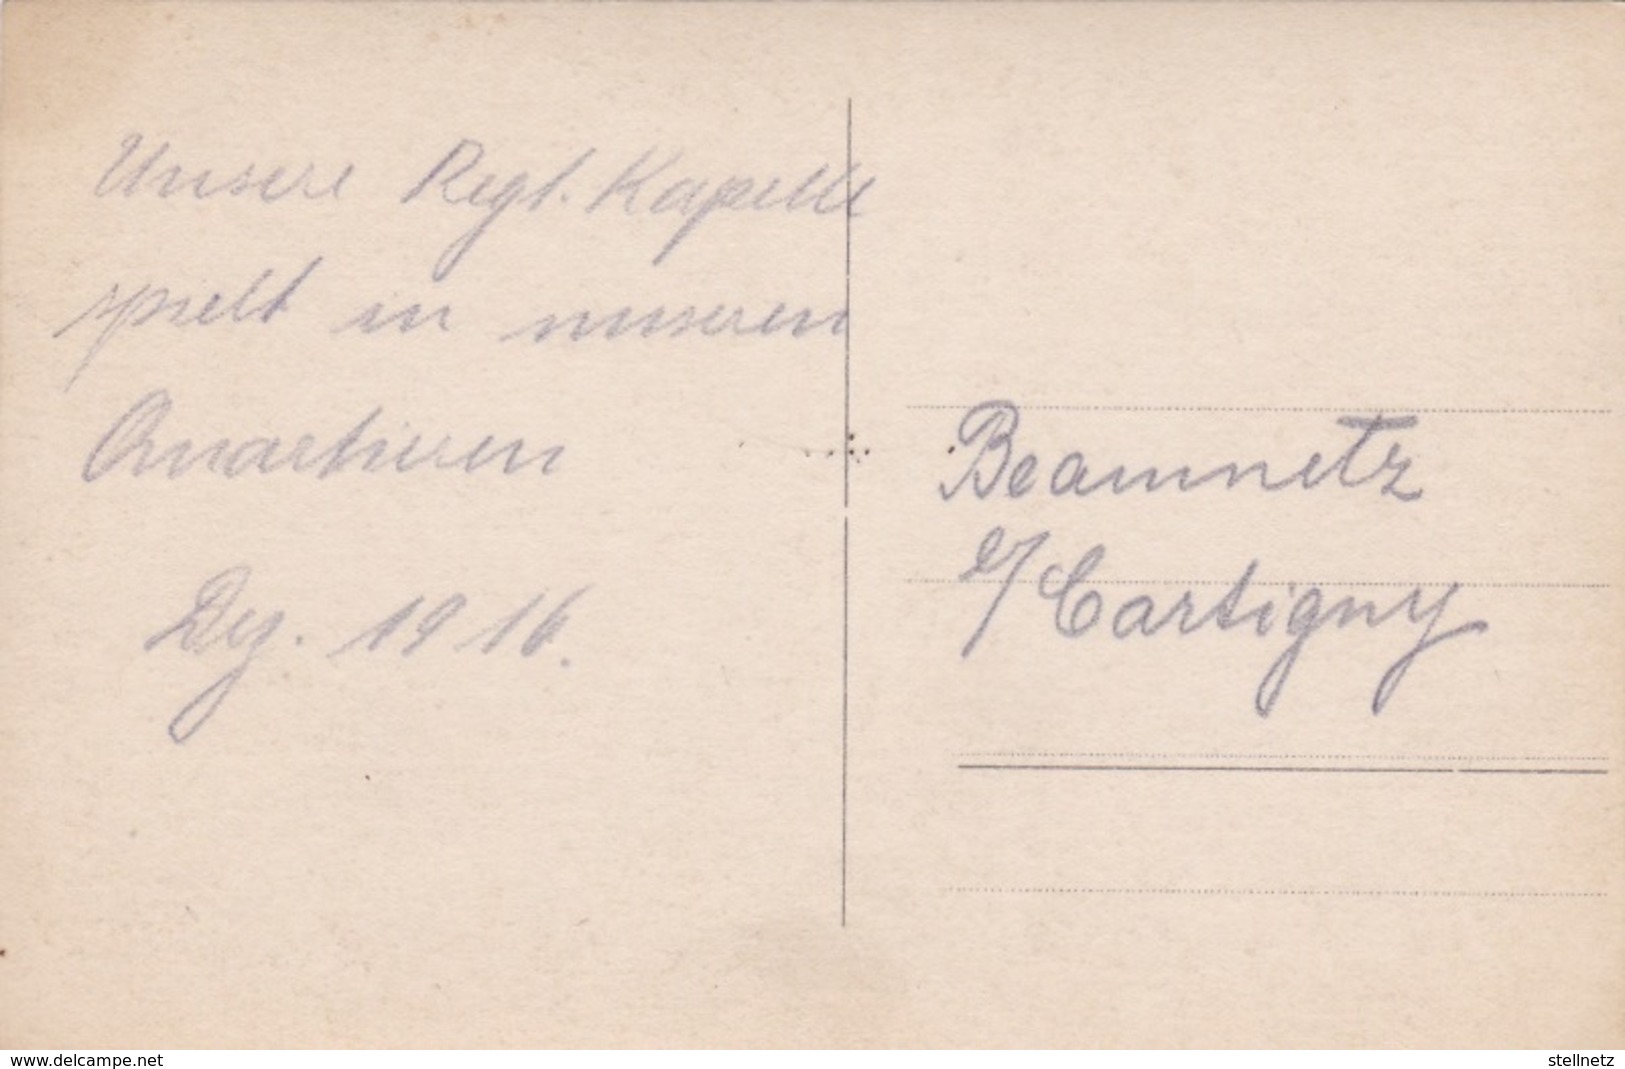 Unsere Regt. Kapelle
spielt in unseren
Quartieren
Dez. 1916.
Beaumetz
b/Cartigny
www.delcampe.net
stellnetz